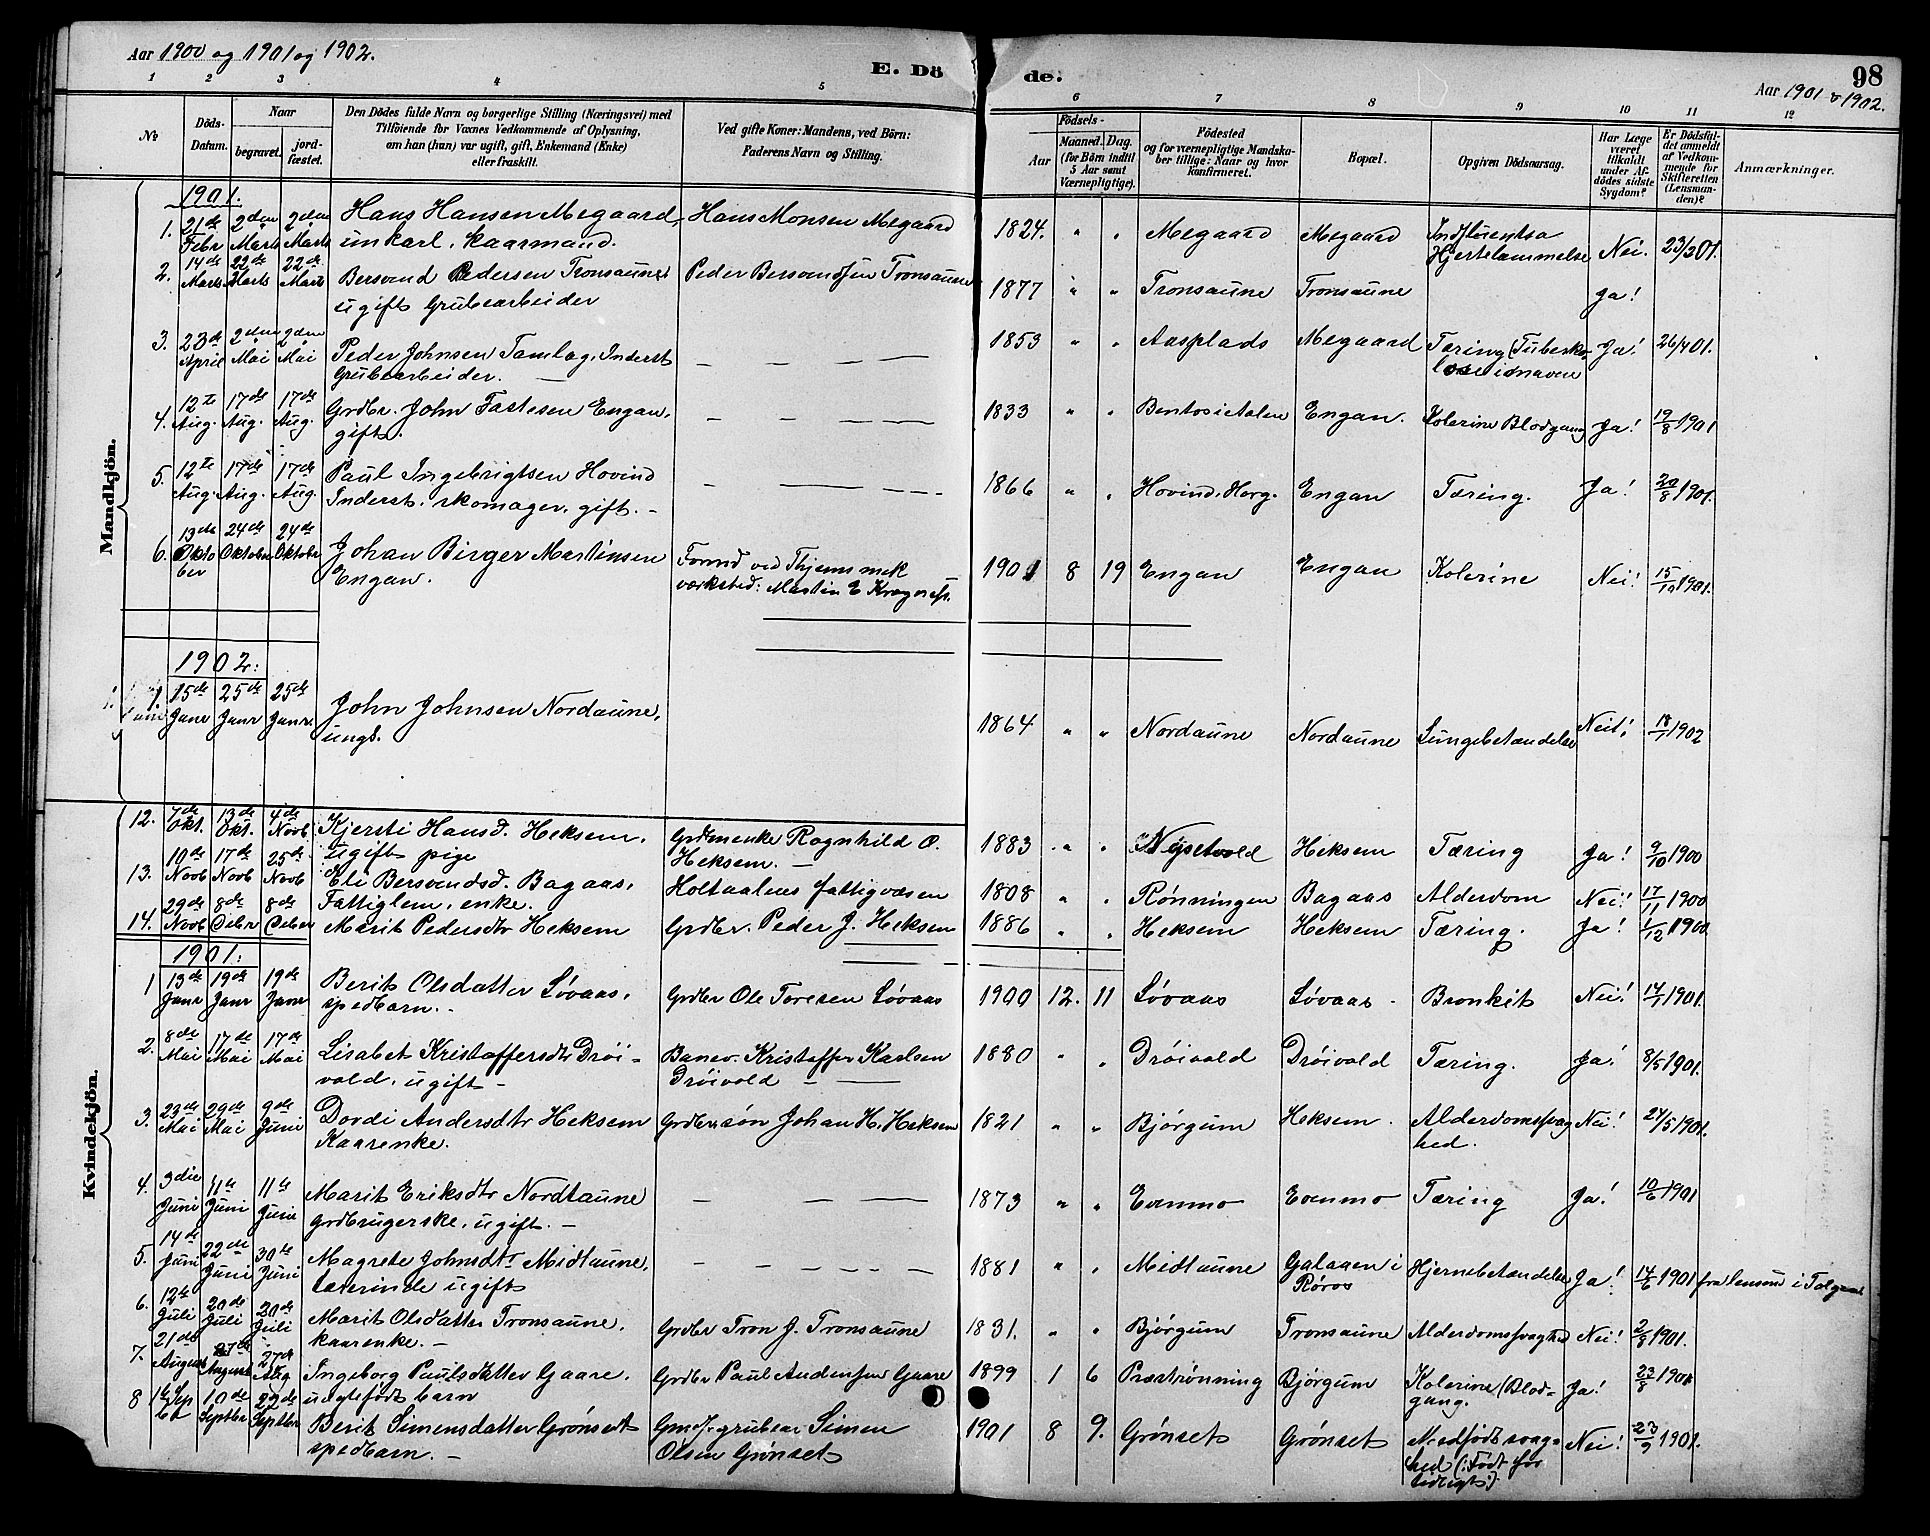 Aar 1900 og 1901 og 1902.
E. Döde.
98
Aar 1901 & 1902.
1 2 3 4 5 6 7 8 9 10 11 12
No
Döds-
Datum.
Naar
begravet.
jord-
fæstet.
Den Dödes fulde Navn og borgerlige Stilling (Næringsvei) med
Tilföiende for Voxnes Vedkommende af Oplysning,
om han (hun) var ugift, gift, Enkemand (Enke)
eller fraskilt.
Ved gifte Koner: Mandens, ved Börn:
Faderens Navn og Stilling.
Födsels-
Aar
Maaned. Dag.
(for Börn indtil
5 Aar samt
Værnepligtige).
Födested
og for værnepligtige Mandska-
ber tillige: Naar og hvor
konfirmeret.
Bopæl.
Opgiven Dödsaarsag.
Har Læge
været
tilkaldt
under Af-
dödes sidste
Sygdom?
Er Dödsfal-
det anmeldt
af Vedkom-
mende for
Skifteretten
(Lensman-
den)?
Anmærkninger.
Mandkjön.
1901.
1. 21de Febr 2den Marts 2den Marts Hans Hansen Megaard, Hans Monsen Megaard 1824. " " Megaard Megaard
unkarl, kaarmand. Hjertelammelse Nei. 23/2 01.
2. 14de Marts 22de Marts 22de Marts Bersvend Pedersen Tronsaune Peder Bersvendsen Tronsaune 1877 " " Tronsaune Tronsaune Ja!
ugift Grubearbeider
3. 23de April 2den Mai 2den Mai Peder Johnsen Tamlag, Inderst — — — 1853 " " Aasplads Megaard Tæring (Tuberku- Ja! 26/4 01.
Grubearbeider. —
4. 12te Aug. 17de Aug. 17de Aug. Grdbr. John Fastesen Engan, — — — 1833 " " Engan. Kolerine Blodgang Ja! 19/8 1901
gift.
5. 12te Aug. 17de Aug. 17de Aug. Paul Ingebrigtsen Hovind — — — 1866 " " Hovind. Horg. Engan Tæring. Ja! 20/8 1901.
Inderst, skomager, gift. —
6. 13de Oktober 24de Oktober 24de Oktobr Johan Birger Martinsen Formd ved Thjems mek 1901 8 19 Engan Engan Kolerine Nei! 15/10 1901.
Engan. værksted: Martin E
1902:
1. 15de Janr 25de Janr 25de Janr. John Johnsen Nordaune, 1864 " " Nordaune Nordaune Lungebetændelse Neil! 18/1 1902
ungk.
Kvindekjön.
12. 7de Okt. 13de Okt. 4de Novb Kjersti Hansd. Heksem, Grdmenke Ragnhild O. 1883 " " Nysetvold Heksem Tæring Ja! 9/10 1900
ugift pige Heksem. —
13. 10de Novb 17de Novb 25de Novb Eli Bersvendsd. Bagaas, Holtaalens fattigvæsen 1808 " " Rønningen Bagaas Alderdom Nei! 17/11 1900
Fattiglem, enke.
14. 29de Novb 8de Debr 8de Marit Pedersdtr Heksem Grdbr. Peder J. Heksem 1886 " " Heksem Heksem Tæring. Ja! 1/12 1900
1901:
1 13de Janr 19de Janr 19de Janr Berit Olsdatter Løvaas, Grdbr Ole Toresen Løvaas 1900 12. 11 Løvaas Løvaas - Bronkit Nei! 14/1 1901.
spedbarn. -
2. 8de Mai 17de Mai 17de Mai Lisabet Kristoffersdtr Drøi- Banev. Kristoffer Karlsen 1880 " " Drøivold Drøivold Tæring. Ja! 8/5 1901.
vold, ugift - Drøivold — —
3. 23de Mai 29de Mai 9de Juni Dordi Andersdtr Heksem Grdbrsøn Johan H. Heksem 1821 " " Bjørgum Heksem. Alderdomssvag- Nei! 27/5 1901.
Kaarenke. hed.
4. 3die Juni 11te Juni 11te Juni Marit Eriksdtr Nordtaune — — — 1873 " " Evenmo Evenmo Tæring Ja! 10/6 1901
grdbrugerske, ugift. —
5. 14de Juni 22de Juni 30te Juni Magrete Johnsdtr Midtaune, — — — 1881 " " Midtaune Galaaen i Hjernebetændelse Ja! 14/6 1901 fra lensmd i Tolgen
lærerinde ugift Røros
6. 12te Juli 20de Juli 20de Juli Marit Olsdatter Tronsaune. Grdbr Tron J. Tronsaune 1831. " " Bjørgum Tronsaune Alderdomssvaghed Nei! 2/8 1901.
kaarenke. —
7. 21de August 27de August 27de Aug Ingeborg Paulsdatter Gaare, Grdbr Paul Andersen Gaare 1899 1 6 Prostrønning Bjørgum Kolerine (Blod- Ja! 23/8 1901
uægtefødt barn gang.
8 10de Septbr 22de Septbr Berit Simensdatter Grønset Simen 1901 8 9. Grønset Grønset Medfødt svag- Nei! 23/9 1901.
spedbarn. — Olsen Grønset hed (: Født for
tidligt :)